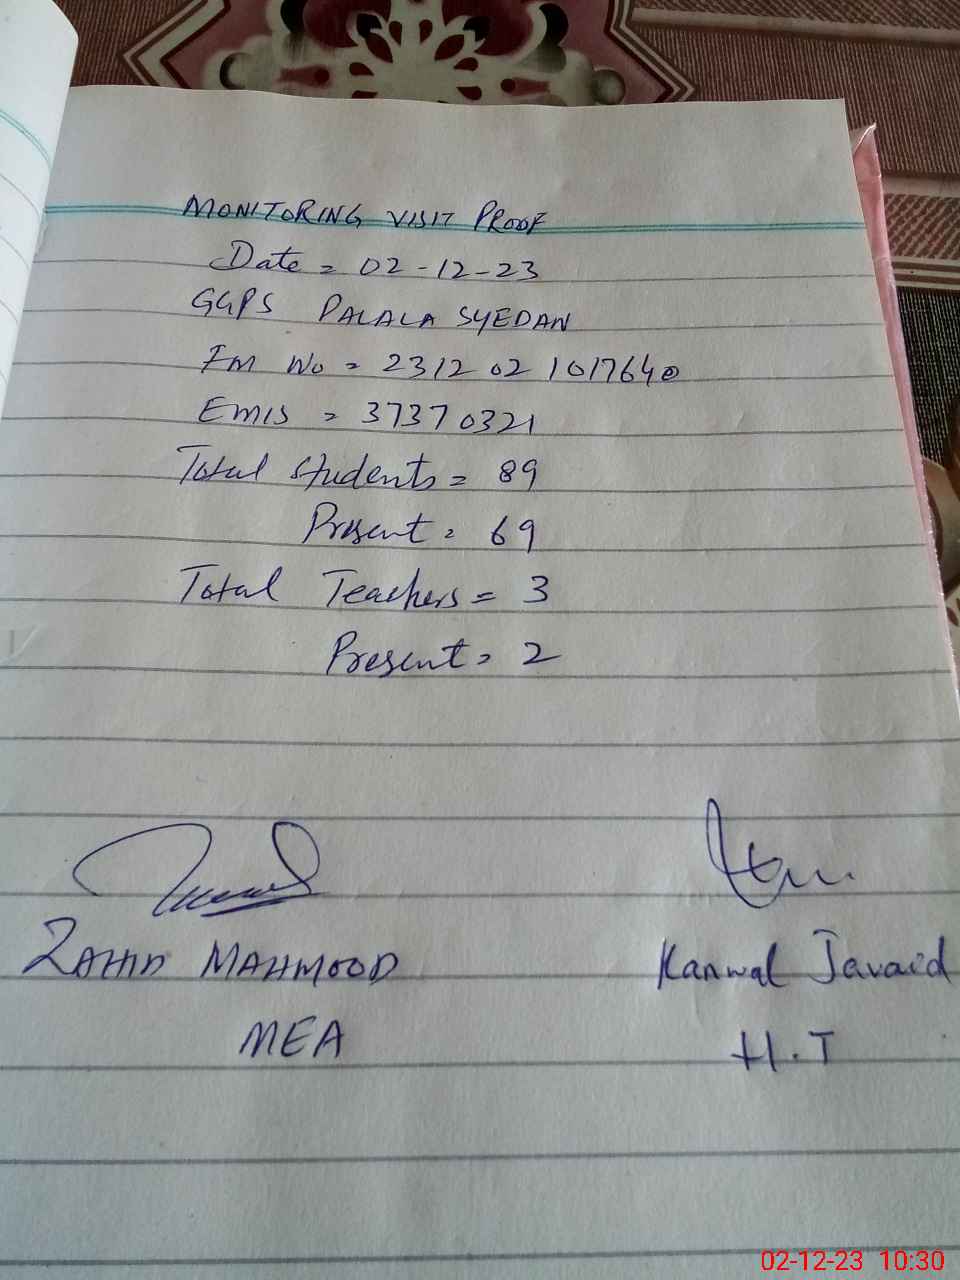 MONITORING VISIT PROOF
Date = 02-12-23
GGPS PALALA SYEDAN
FM No = 2312 02 1017640
EMIS = 37370321
Total students = 89
Present = 69
Total Teachers = 3
Present = 2
ZAHID MAHMOOD
Kanwal Javaid
MEA
H.T
02-12-23 10:30